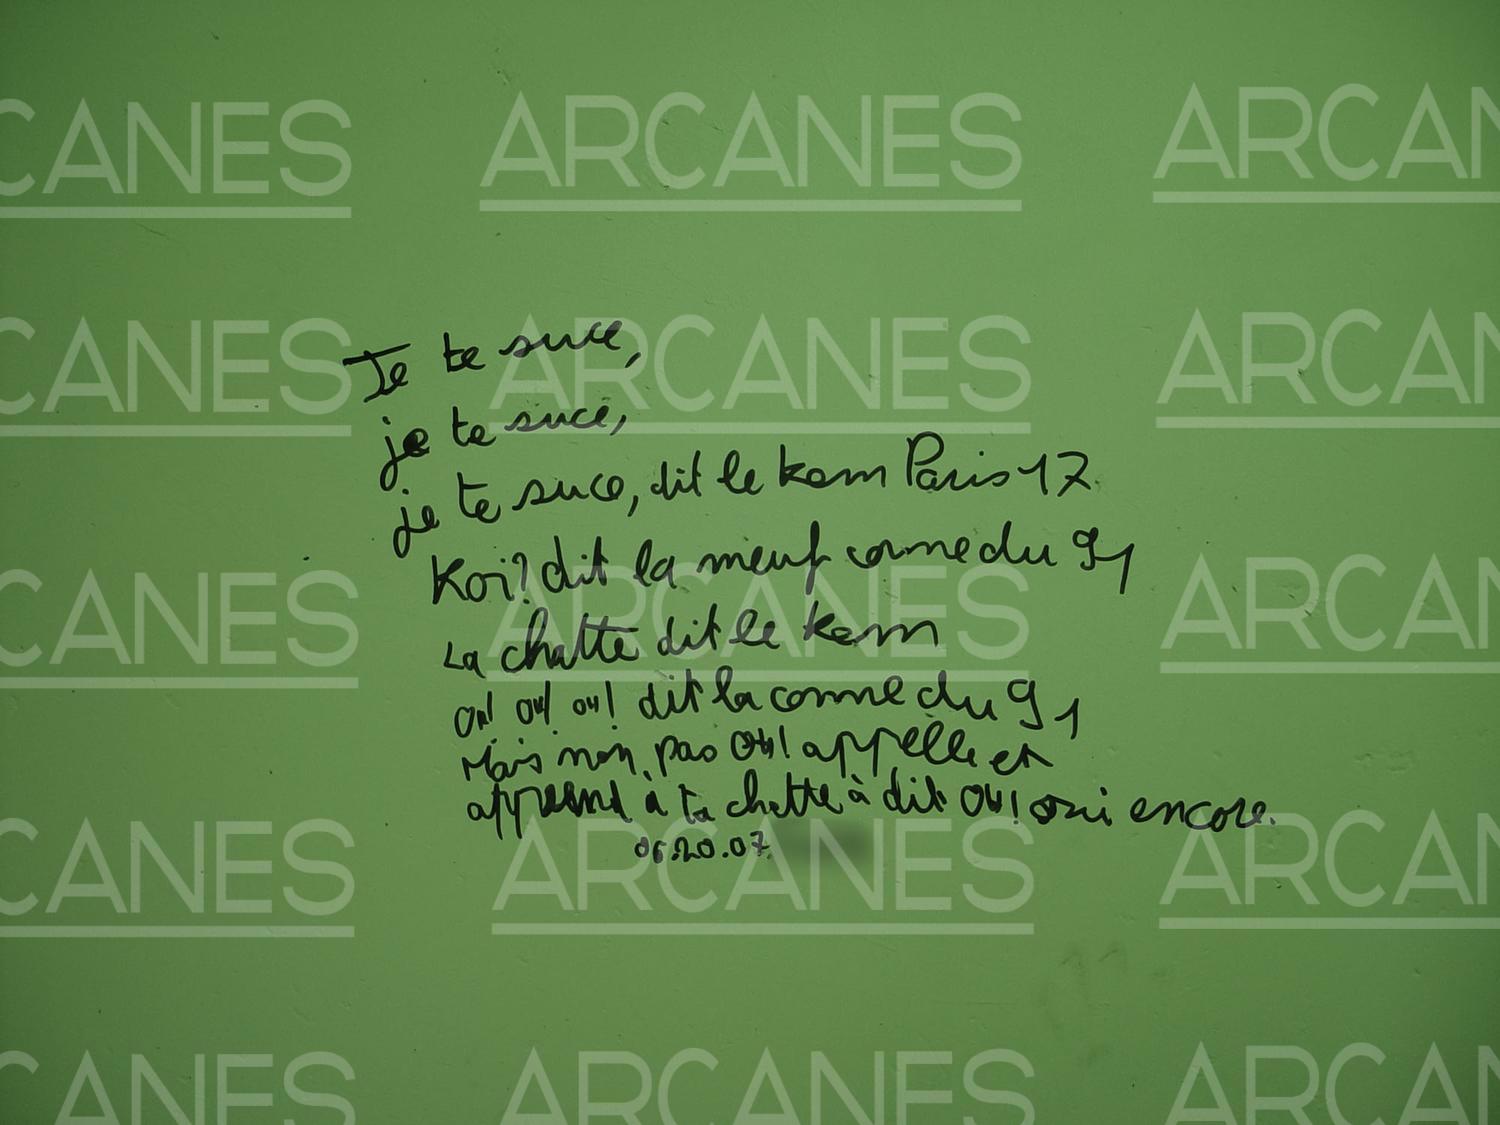 CANES ARCANES ARCAN
CANES ARCANES ARCAN
Je te suce,
je te suce,
je te suce, dit le kem Paris 17
Koi? dit la meuf conne du 91
CANES ARCANES ARCAN
La chatte dit le kem
OW! OW! OW! dit la conne du 91
Mais non, pas OW! appelle et
apprend à ta chatte à dit OW! oui encore.
06.20.07.
CANES ARCANES ARCAN
CANES ARCANES ARCAN